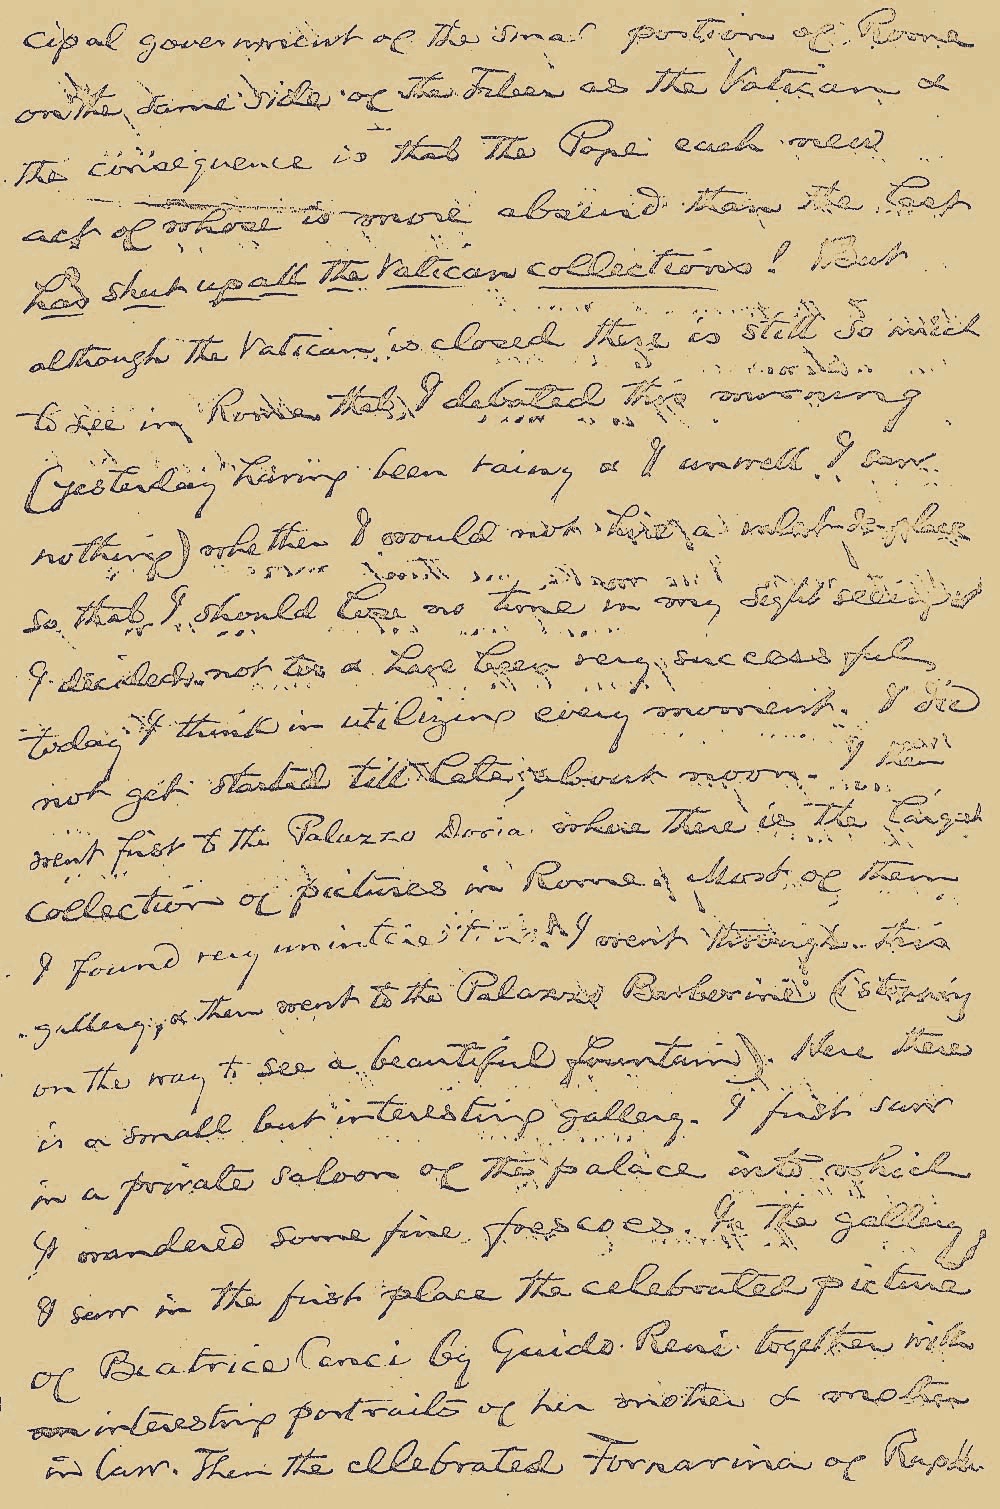 cipal government of the smal portion of Rome
on the same side of the Tiber as the Vatican &
the consequence is that the Pope each new
act of whose is more absurd than the last
has shut up all the Vatican collections! But
although the Vatican is closed there is still so much
to see in Rome that I debated this morning
(yesterday having been rainy & I unwell I saw
nothing) whether I would not hire a valet-de-place
so that I should lose no time in my sight seeing &
I decided not to & have been very successful
today I think in utilizing every moment. I did
not get started till late, about noon. I then
went first to the Palazzo Doria where there is the largest
collection of pictures in Rome. Most of them
I found very uninteresting. I went through this
gallery, & then went to the Palazzo Barberini (stopping
on the way to see a beautiful fountain). Here there
is a small but interesting gallery. I first saw
in a private saloon of the palace into which
I wandered some fine frescoes. In the gallery
I saw in the first place the celebrated picture
of Beatrice Cenci by Guido Reni together with
interesting portraits of her mother & mother
in law. Then the celebrated Fornarina of Raph